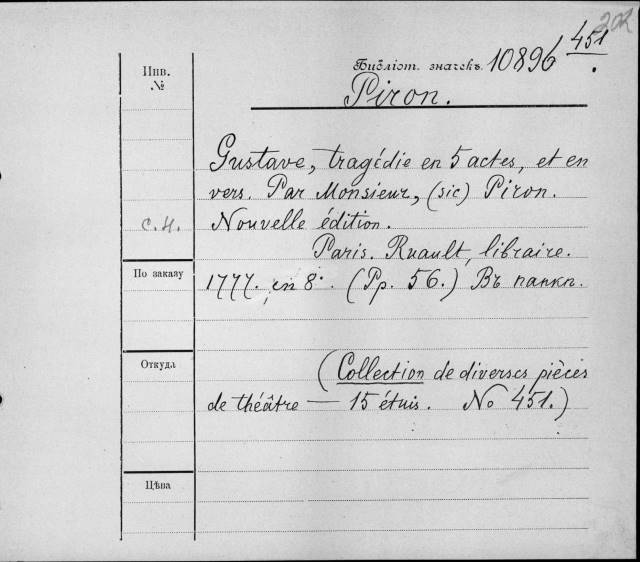 202
Библіот. значекъ 10896 451.
Инв. №
Piron.
Gustave, tragédie en 5 actes, et en
vers. Par Monsieur, (sic) Piron.
с.н. Nouvelle édition.
Paris. Ruault, libraire.
По заказу
1777. in 8°. (Pp. 56.) Въ папкѣ.
Откуда
(Collection de diverses pièces
de théâtre — 15 étuis. No 451.)
Цѣна